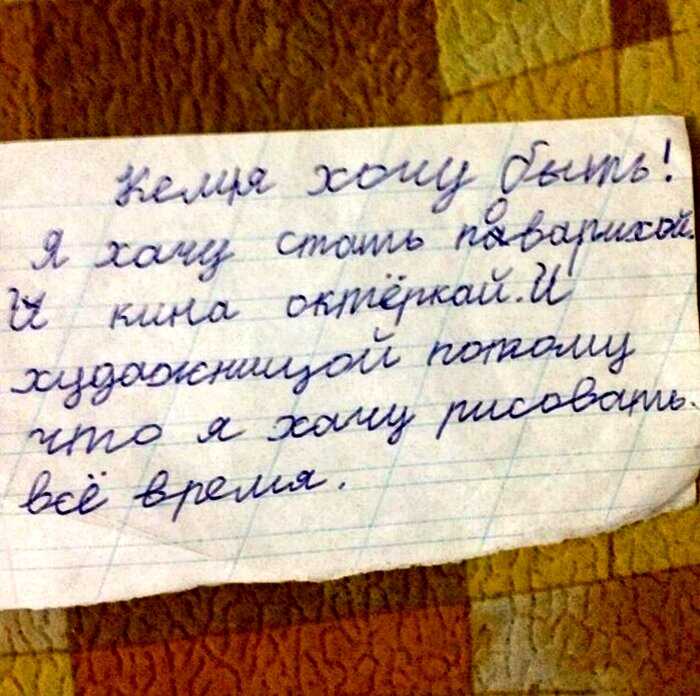 Кемя хочу быть!
Я хачу стать поварихой.
И кина октёркай. И
художницой потому
что я хачу рисовать.
всё время.